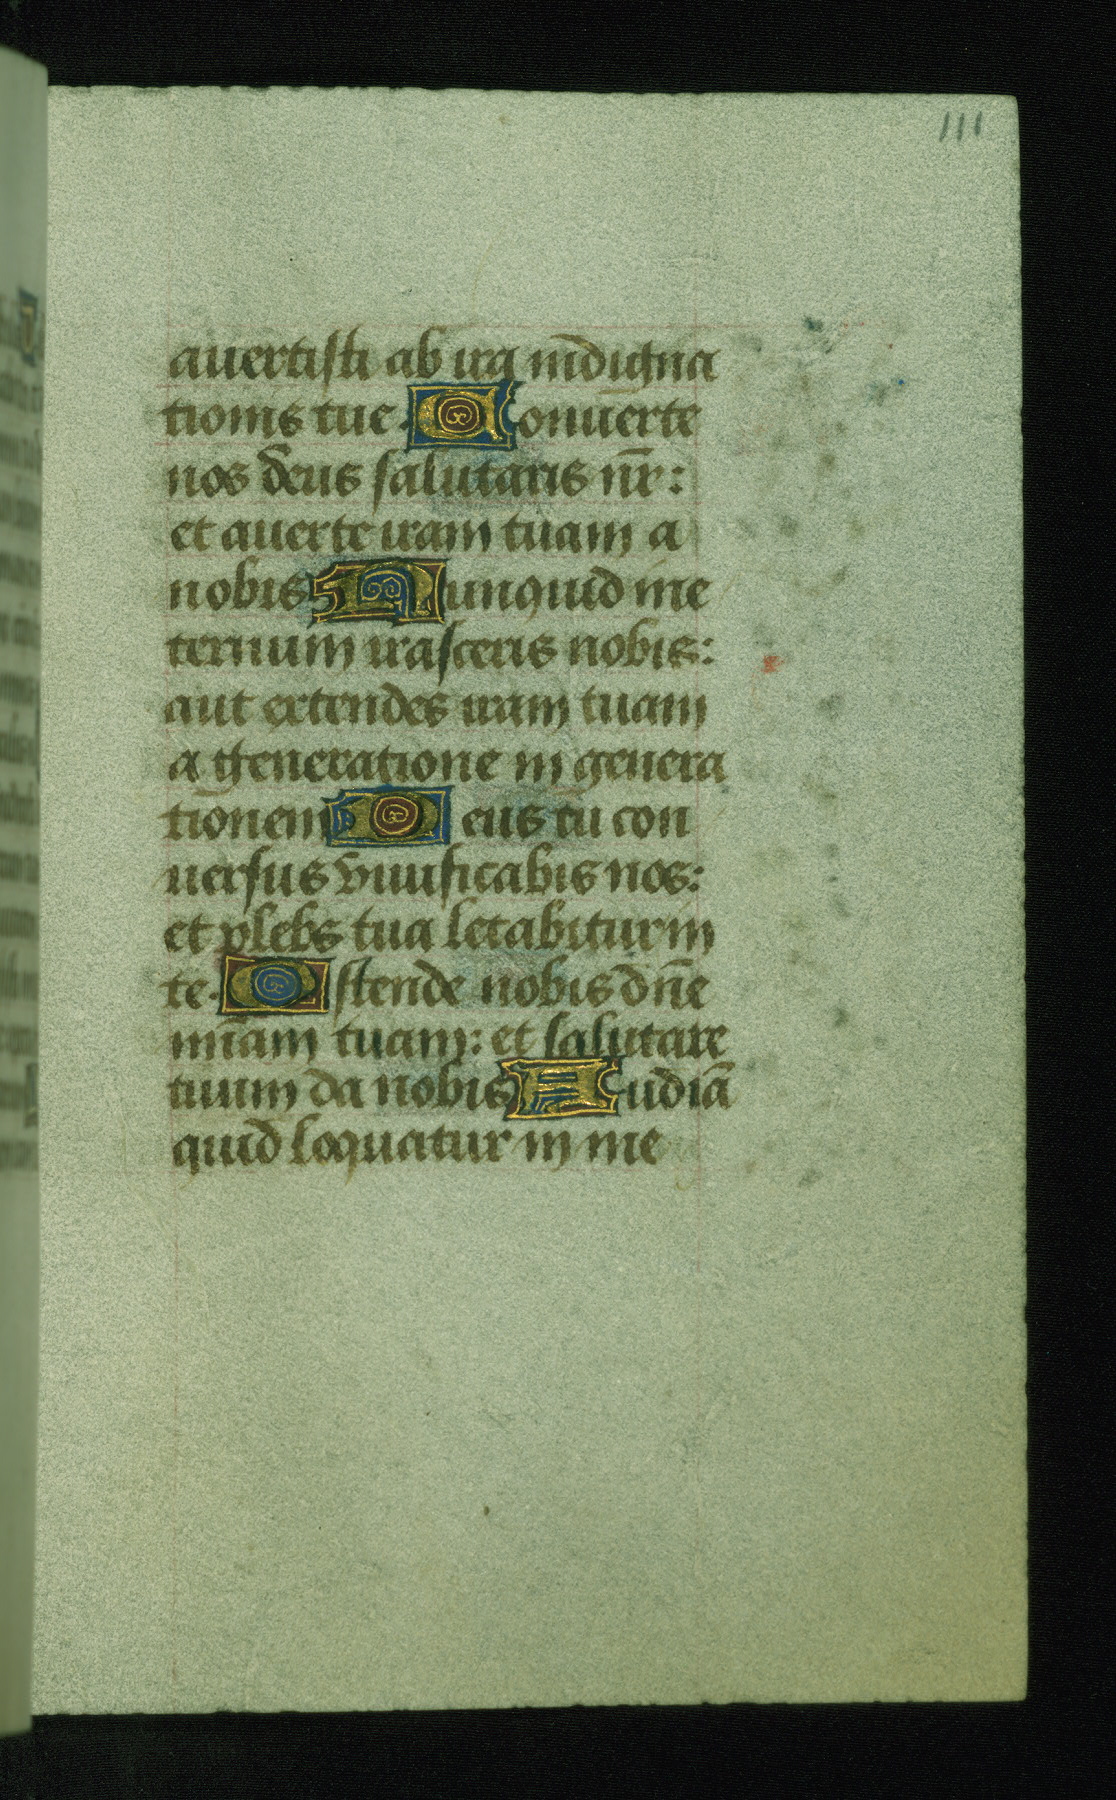 111
auertisti ab ira indigna
tionis tue. Conuerte
nos deus salutaris nr̄:
et auerte iram tuam a
nobis Nunquid in e
ternum irasceris nobis:
aut extendes iram tuam
a generatione in genera
tionem Deus tu con
uersus viuificabis nos:
et plebs tua letabitur in
te. Ostende nobis dn̄e
mīam tuam: et salutare
tuum da nobis Audiā
quid loquatur in me